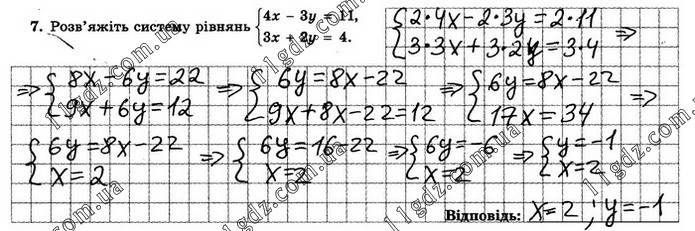 7. Розв'яжіть систему рівнянь { 4x − 3y = 11, 3x + 2y = 4.
{ 2·4x−2·3y=2·11 3·3x+3·2y=3·4 =>
=> { 8x−6y=22 9x+6y=12 => { 6y=8x−22 9x+8x−22=12 => { 6y=8x−22 17x=34 =>
{ 6y=8x−22 x=2 => { 6y=16−22 x=2 => { 6y=−6 x=2 => { y=−1 x=2
Відповідь: x=2 ; y=−1
11gdz.com.ua